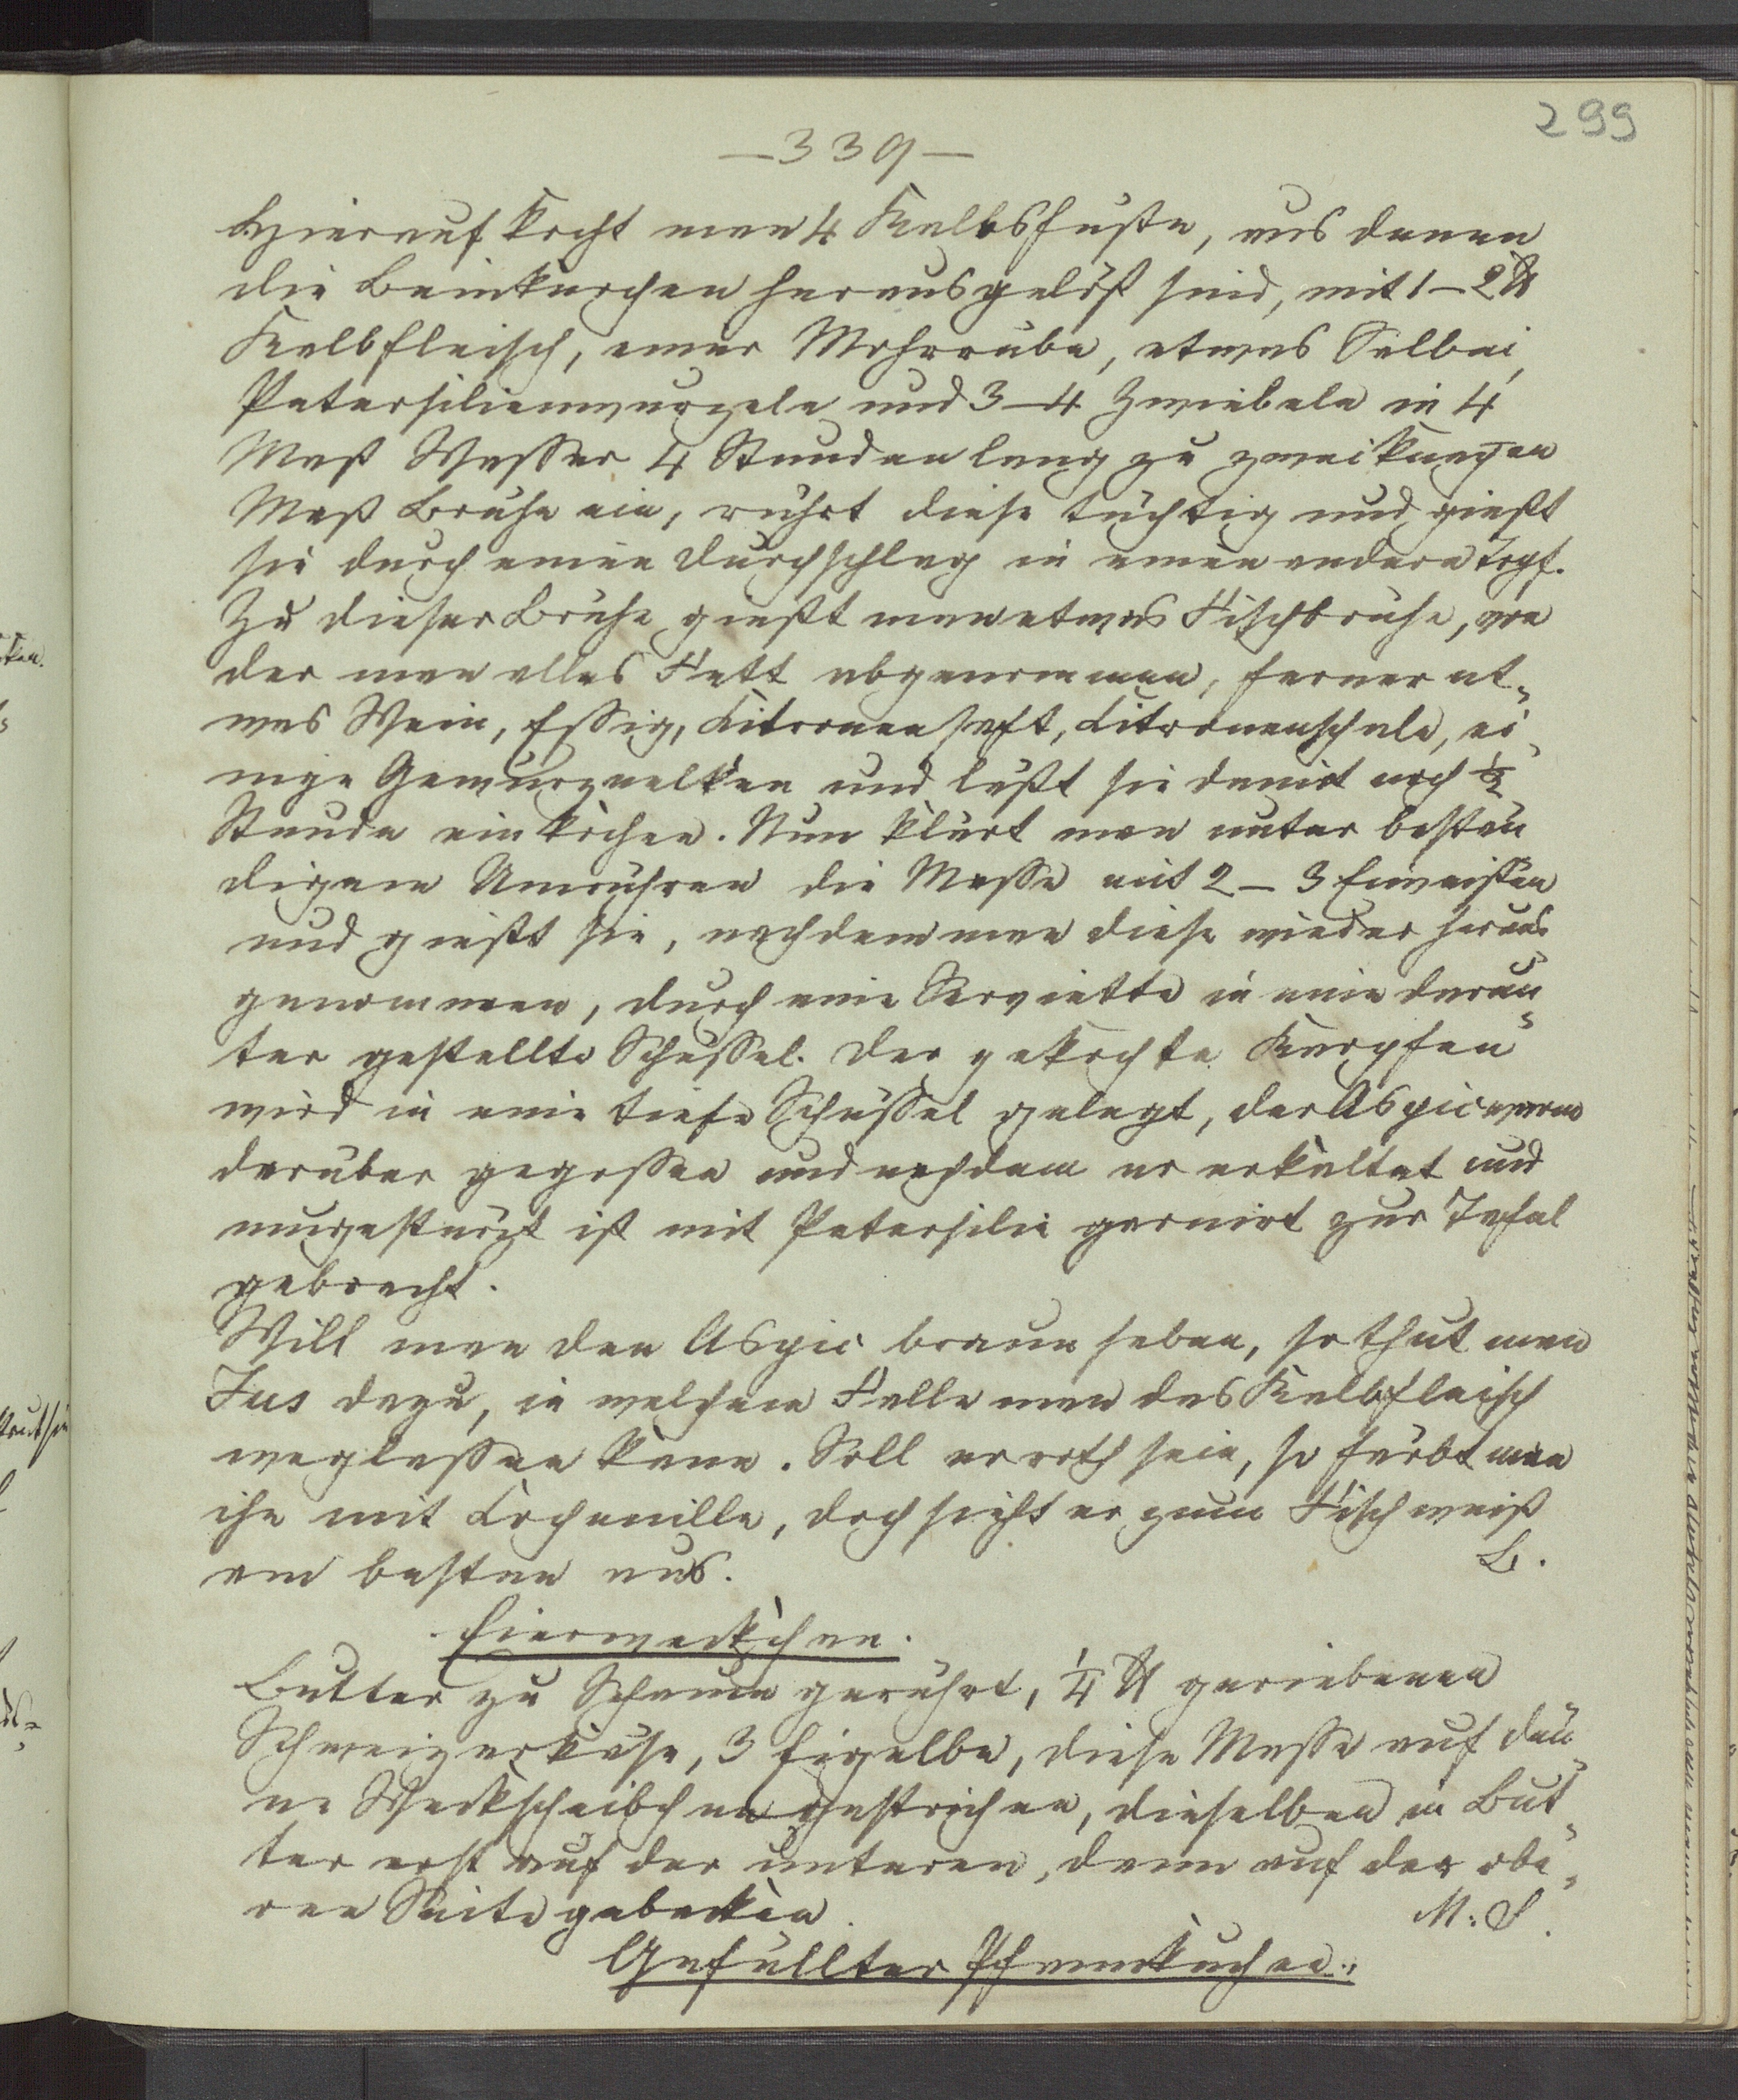 299
—339—
Hierauf kocht man 4 Kalbsfüße, aus denen
die Beinknochen herausgelößt sind, mit 1–2 ℔
Kalbfleisch, einer Mohrrübe, etwas Salbei,
Petersilienwurzeln und 3–4 Zwiebeln in 4
Maß Wasser 4 Stunden lang zu zwei knappen
Maß Brühe ein, rührt diese tüchtig und gießt
sie durch einen Durchschlag in einen andern Topf.
Zu dieser Brühe gießt man etwas Fischbrühe, von
der man alles Fett abgenommen, ferner et-
was Wein, Essig, Citronensaft, Citronenschale, ei
nige Gewürznelken und läßt sie damit noch ½
Stunde einkochen. Nun klärt man unter bestän
digem Umrühren die Masse mit 2–3 Eiweissen
und gießt sie, nachdem man diese wieder heraus
genommen, durch eine Serviette in eine darun-
ter gestellte Schüssel. Der gekochte Karpfen
wird in eine tiefe Schüssel gelegt, der Aspic warm
darüber gegossen und nachdem er erkaltet und
umgestürzt ist mit Petersilie garnirt zur Tafel
gebracht.
Will man den Aspic braun haben, so thut man
Jus dazu, in welchem Falle man das Kalbfleisch
weglassen kann. Soll er roth sein, so färbt man
ihn mit Cochenille, doch sieht er zum Fisch weiß
am besten aus. L.
Eierweckchen.
Butter zu Schaum gerührt, ¼ ℔ geriebenen
Schweizerkäse, 3 Eigelbe, diese Masse auf dün-
ne Weckscheibchen gestrichen, dieselben in But-
ter erst auf der unteren, dann auf der obe-
ren Seite gebacken. M: S.
Gefüllter Pfannkuchen.